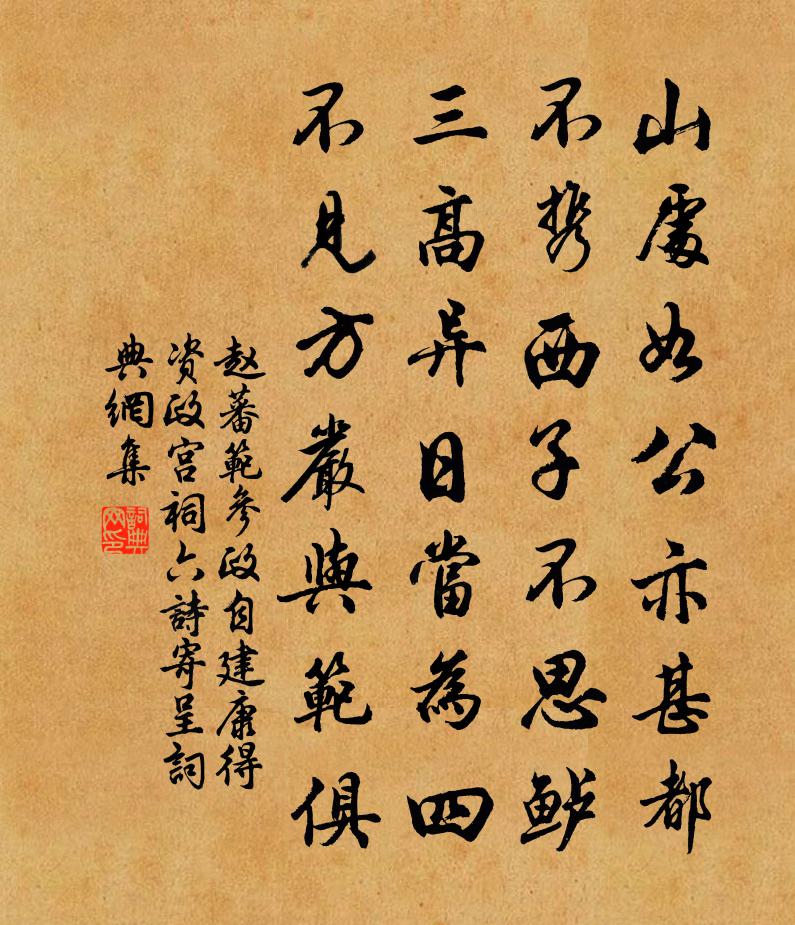 山處如公亦甚都
不携西子不思鲈
三高异日當為四
不見方嚴與範俱
赵蕃範參政自建康得
资政宫祠六詩寄呈詞
典網集
詞典
网印